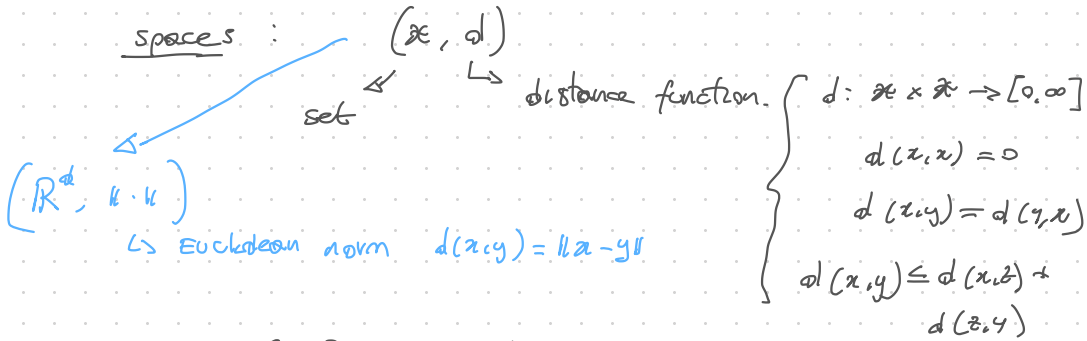 spaces : (𝒳, d)
set
distance function.
d: 𝒳 × 𝒳 → [0,∞]
d(x,x) = 0
d(x,y) = d(y,x)
d(x,y) ≤ d(x,z) +
d(z,y)
(ℝᵈ, ‖·‖)
↳ Euclidean norm d(x,y) = ‖x-y‖